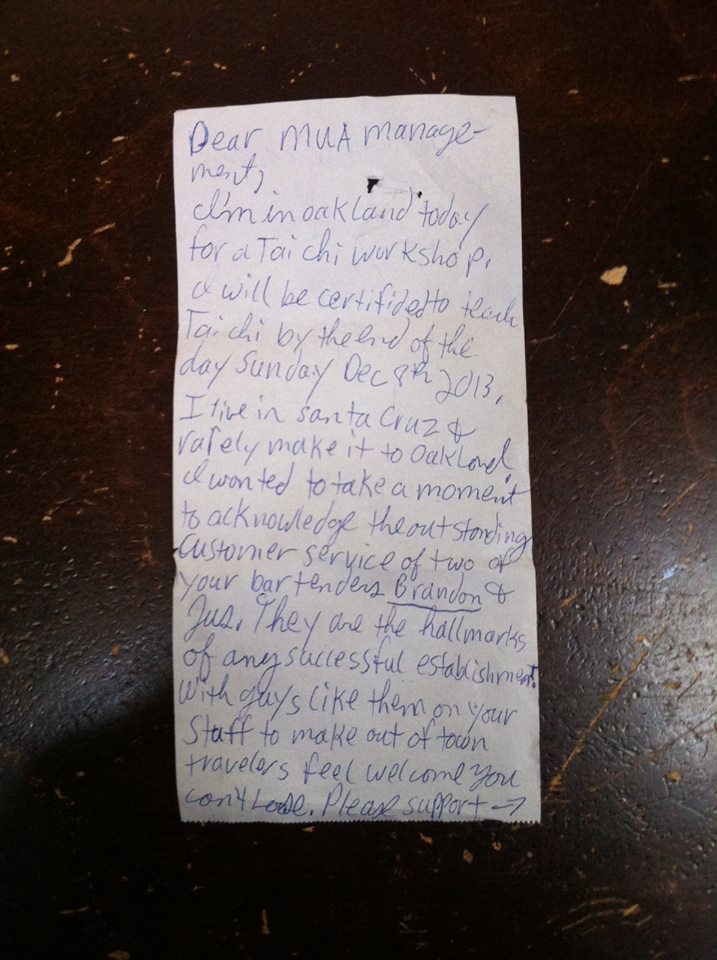 Dear MUA manage-
ment,
I'm in oakland today
for a Tai chi workshop.
I will be certifided to teach
Tai chi by the end of the
day Sunday Dec 8th 2013.
I live in santa Cruz &
rarely make it to Oakland.
I wanted to take a moment
to acknowledge the outstanding
customer service of two of
your bartenders Brandon &
They are the hallmarks
of any successful establishment.
With guys like them on your
Staff to make out of town
travelers feel welcome you
can't Lose. Please support →